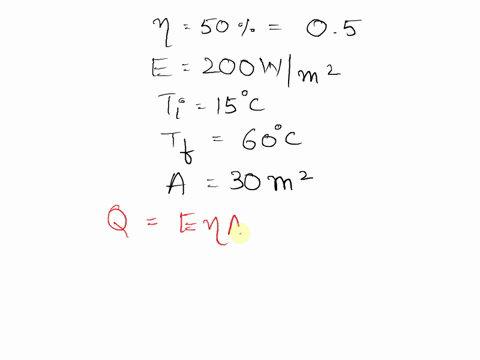 η = 50% = 0.5
E = 200W/m²
Tᵢ = 15°C
T_f = 60°C
A = 30m²
Q = Eη